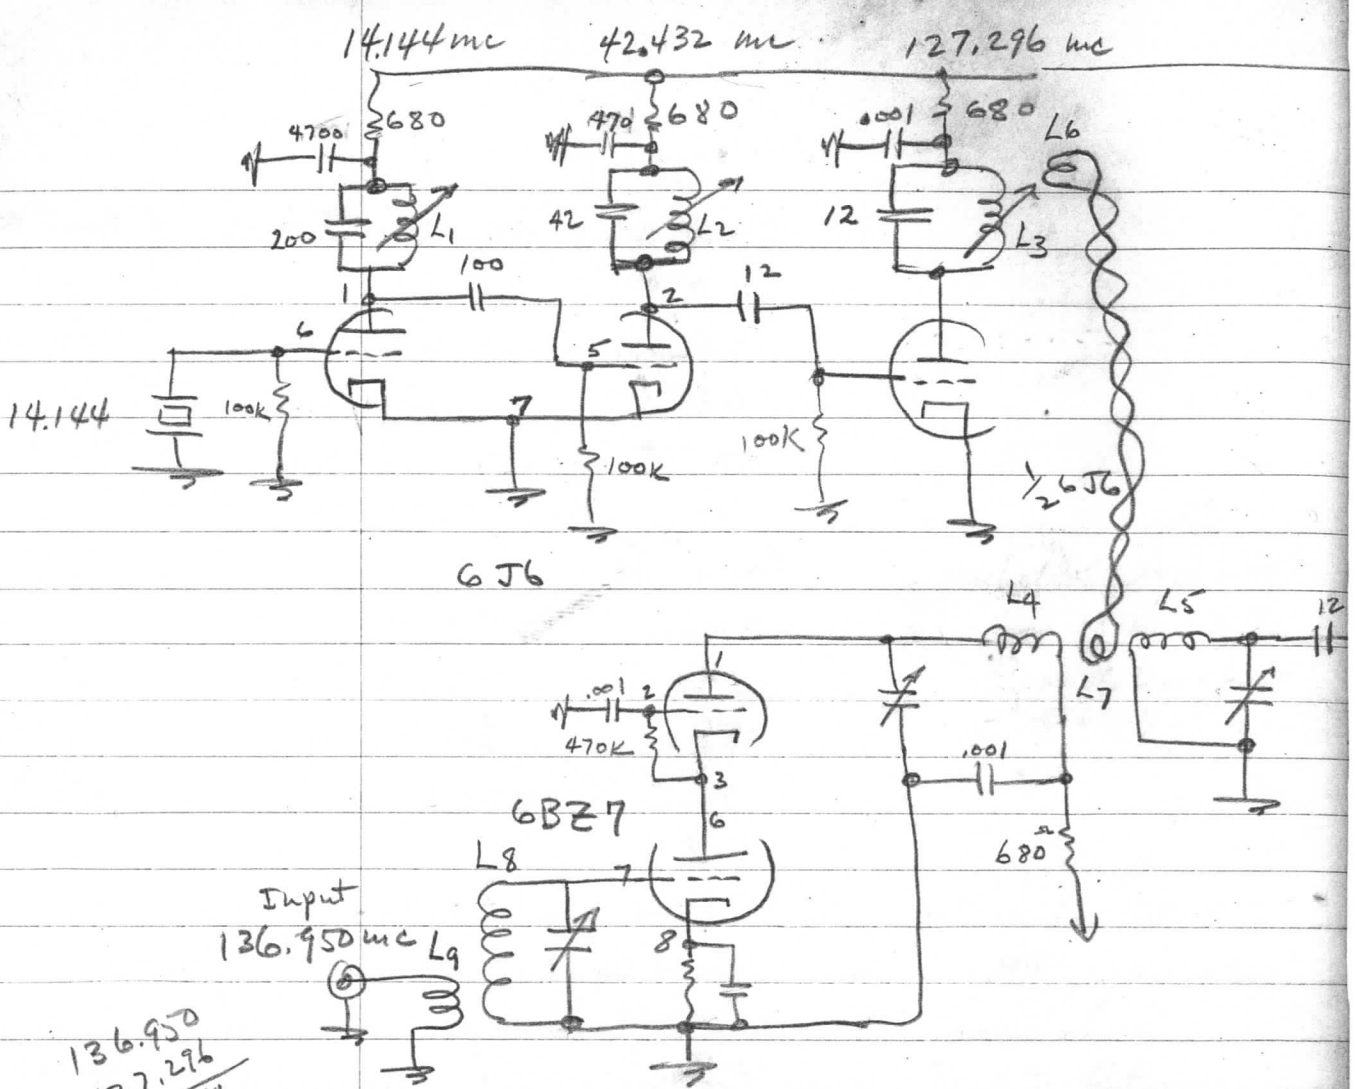 14.144 mc 42.432 mc 127.296 mc
680 680 680
4700 470 .001
L6
200 L1 42 L2 12 L3
100 12
1 2
6 5
14.144 100K 7 100K 100K
1/2 6J6
6J6
L4 L5 12
L7
1
.001 2
470K
3 .001
6BZ7 6
680Ω
L8
7
Input
136.950 mc L9 8
136.950